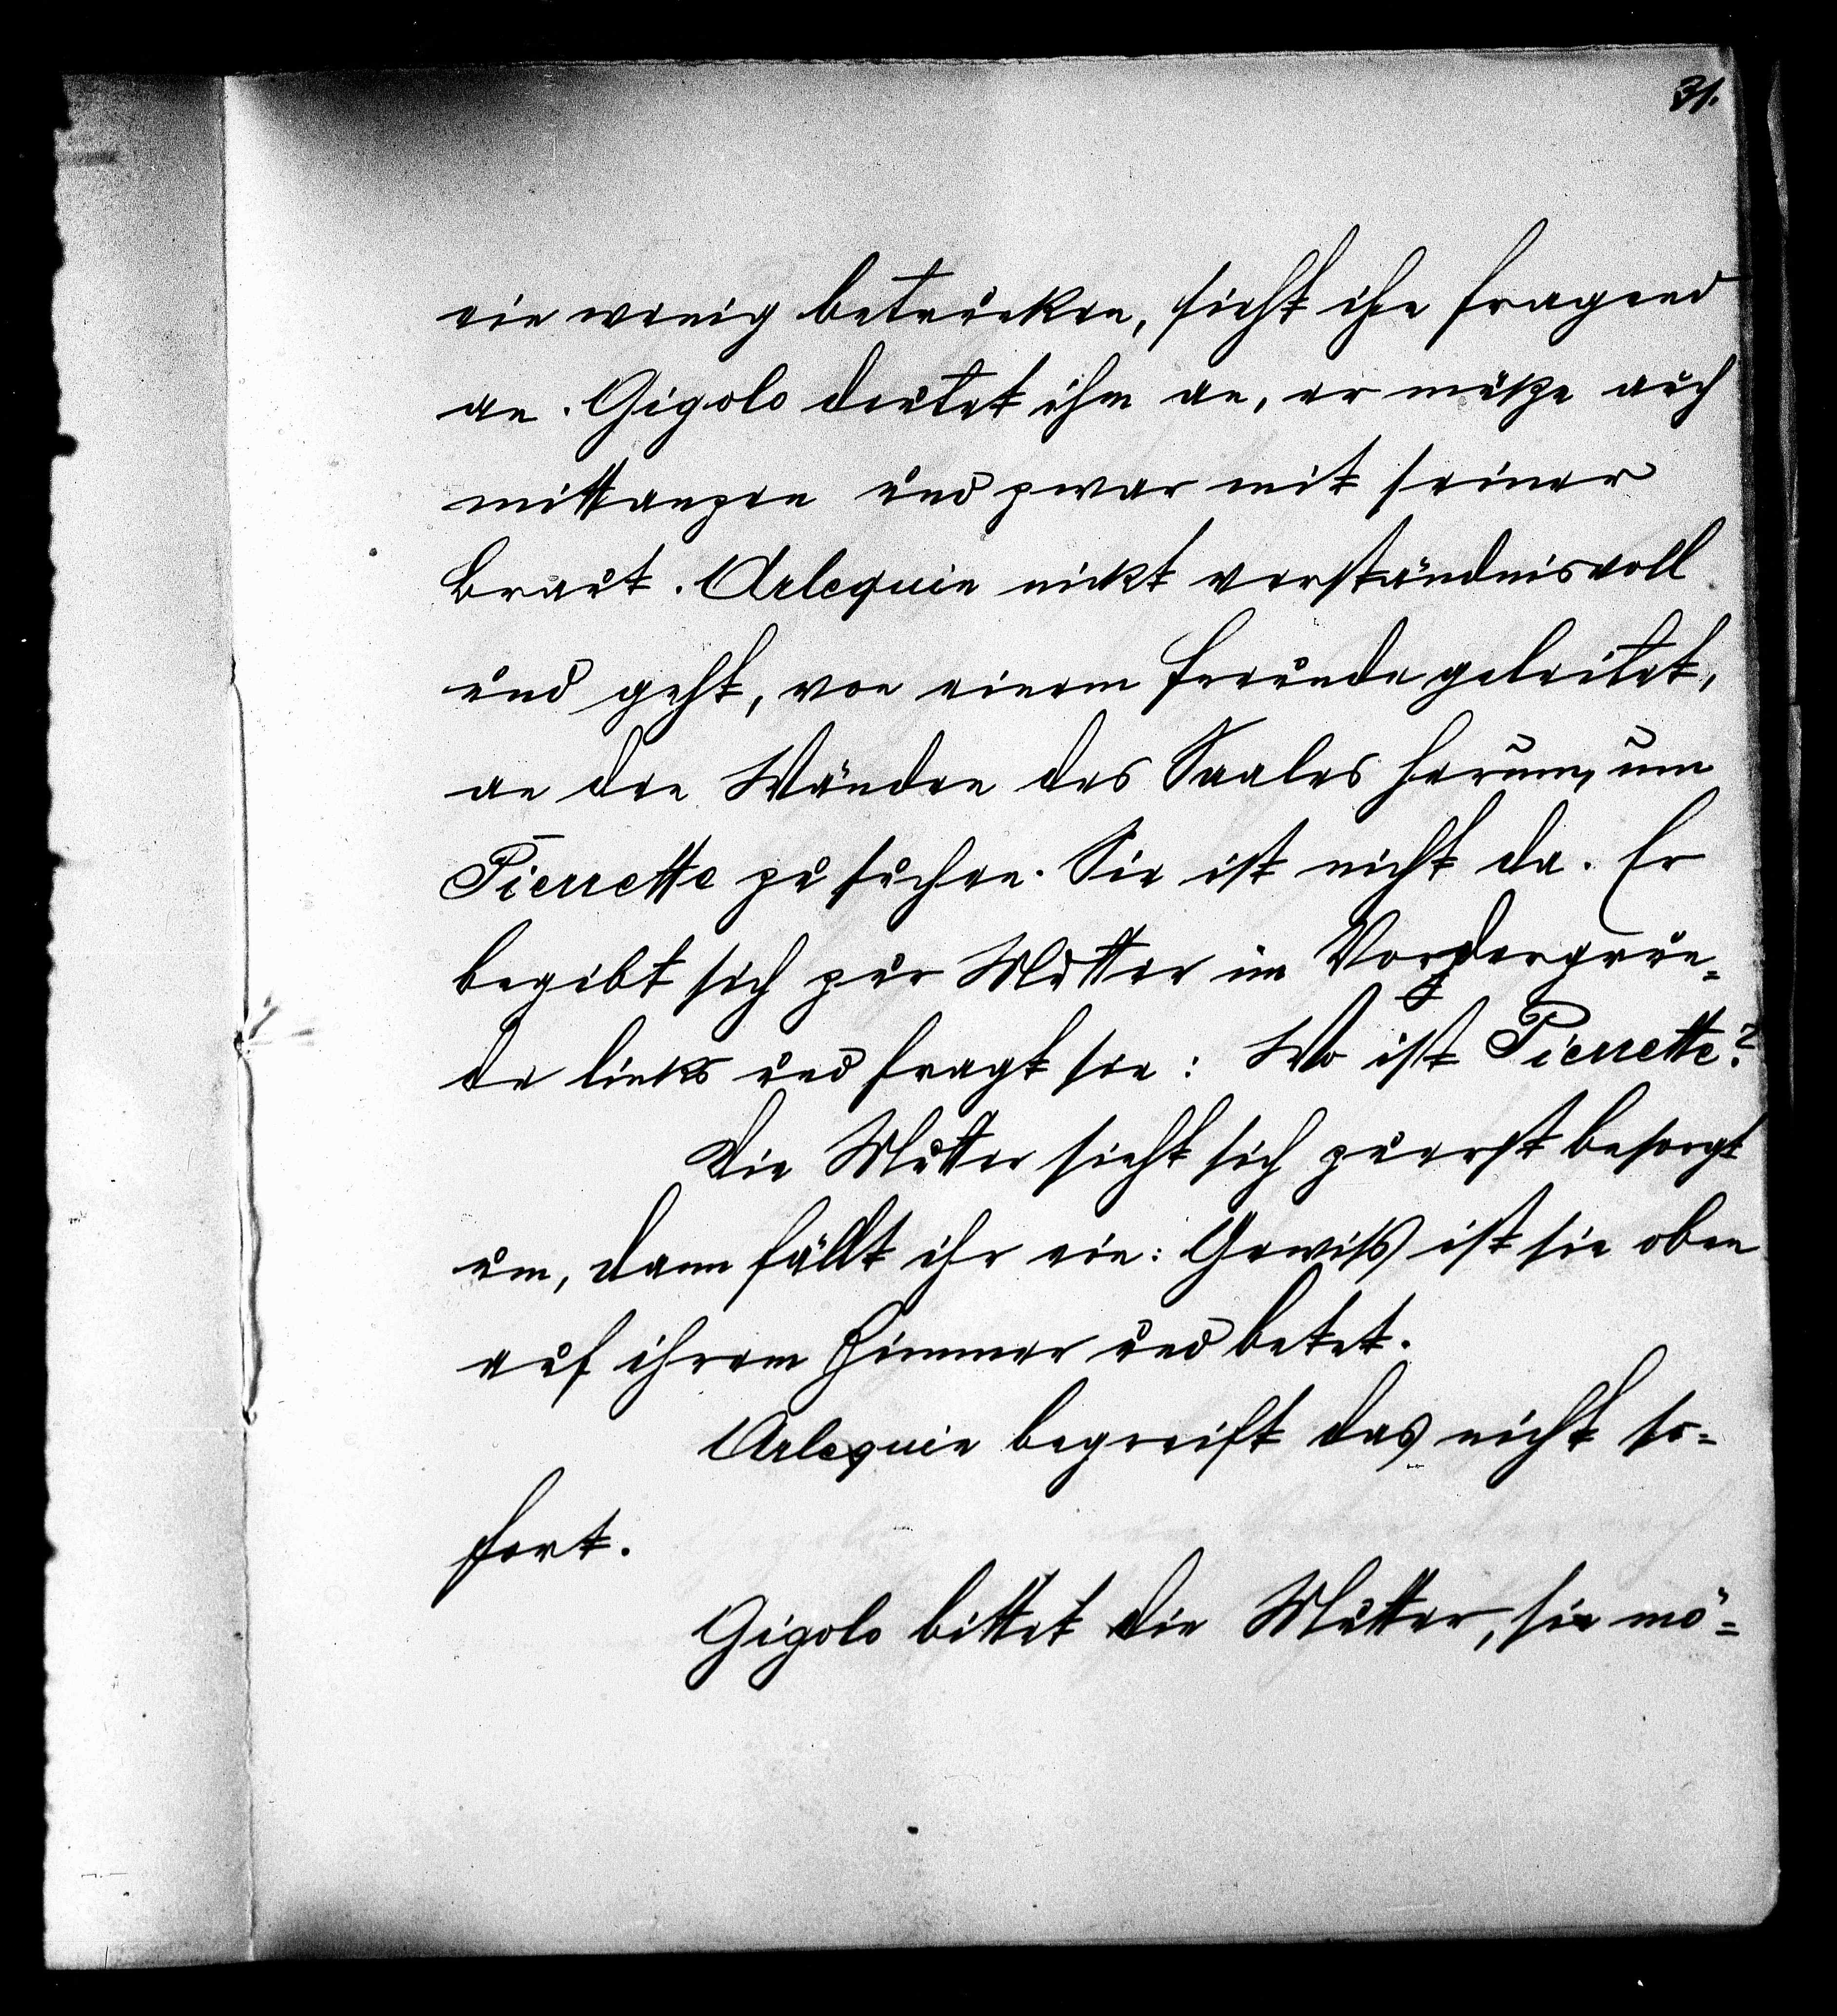 31.
ein wenig betrunken, sieht ihn fragend
an. Gigolo deutet ihm an, er müße auch
mittanzen und zwar mit seiner
Braut. Arlequin nickt verständnisvoll
und geht, von einem Freunde geleitet,
an den Wänden des Saales herum, um
Pierrette zu suchen. Sie ist nicht da. Er
begibt sich zur Mutter im Vordergrun=
de links und fragt sie: Wo ist Pierrette?
Die Mutter sieht sich zuerst besorgt
um, dann fällt ihr ein: Gewiß ist sie oben
auf ihrem Zimmer und betet.
Arlequin begreift das nicht so=
fort.
Gigolo bittet die Mutter, sie mö=